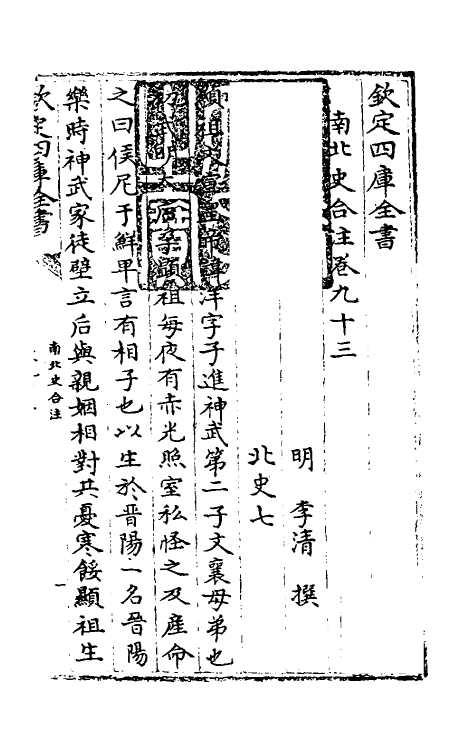 欽定四庫全書
南北史合注卷九十三
明 李清 撰
北史七
顯祖文宣皇帝諱洋字子進神武第二子文襄母弟也
后 孕顯祖每夜有赤光照室私怪之及産命
之曰侯尼于鮮卑言有相子也以生於晉陽一名晉陽
樂時神武家徒壁立后與親姻相對共憂寒餒顯祖生
欽定四庫全書
南北史合注
一